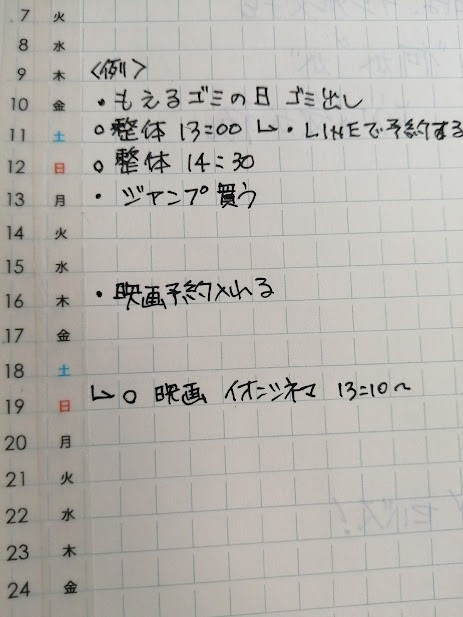 7 火
8 水
9 木 〈例〉
10 金 ・もえるゴミの日 ゴミ出し
11 土 ○整体 13:00 ↳・LINEで予約する
12 日 ○整体 14:30
13 月 ・ジャンプ買う
14 火
15 水
16 木 ・映画予約入れる
17 金
18 土
19 日 ↳○ 映画 イオンシネマ 13:10〜
20 月
21 火
22 水
23 木
24 金